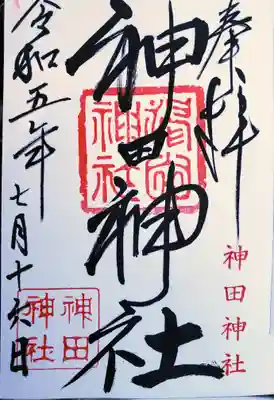 奉拝
神田神社
神田神社
神田
神社
令和五年
七月十六日